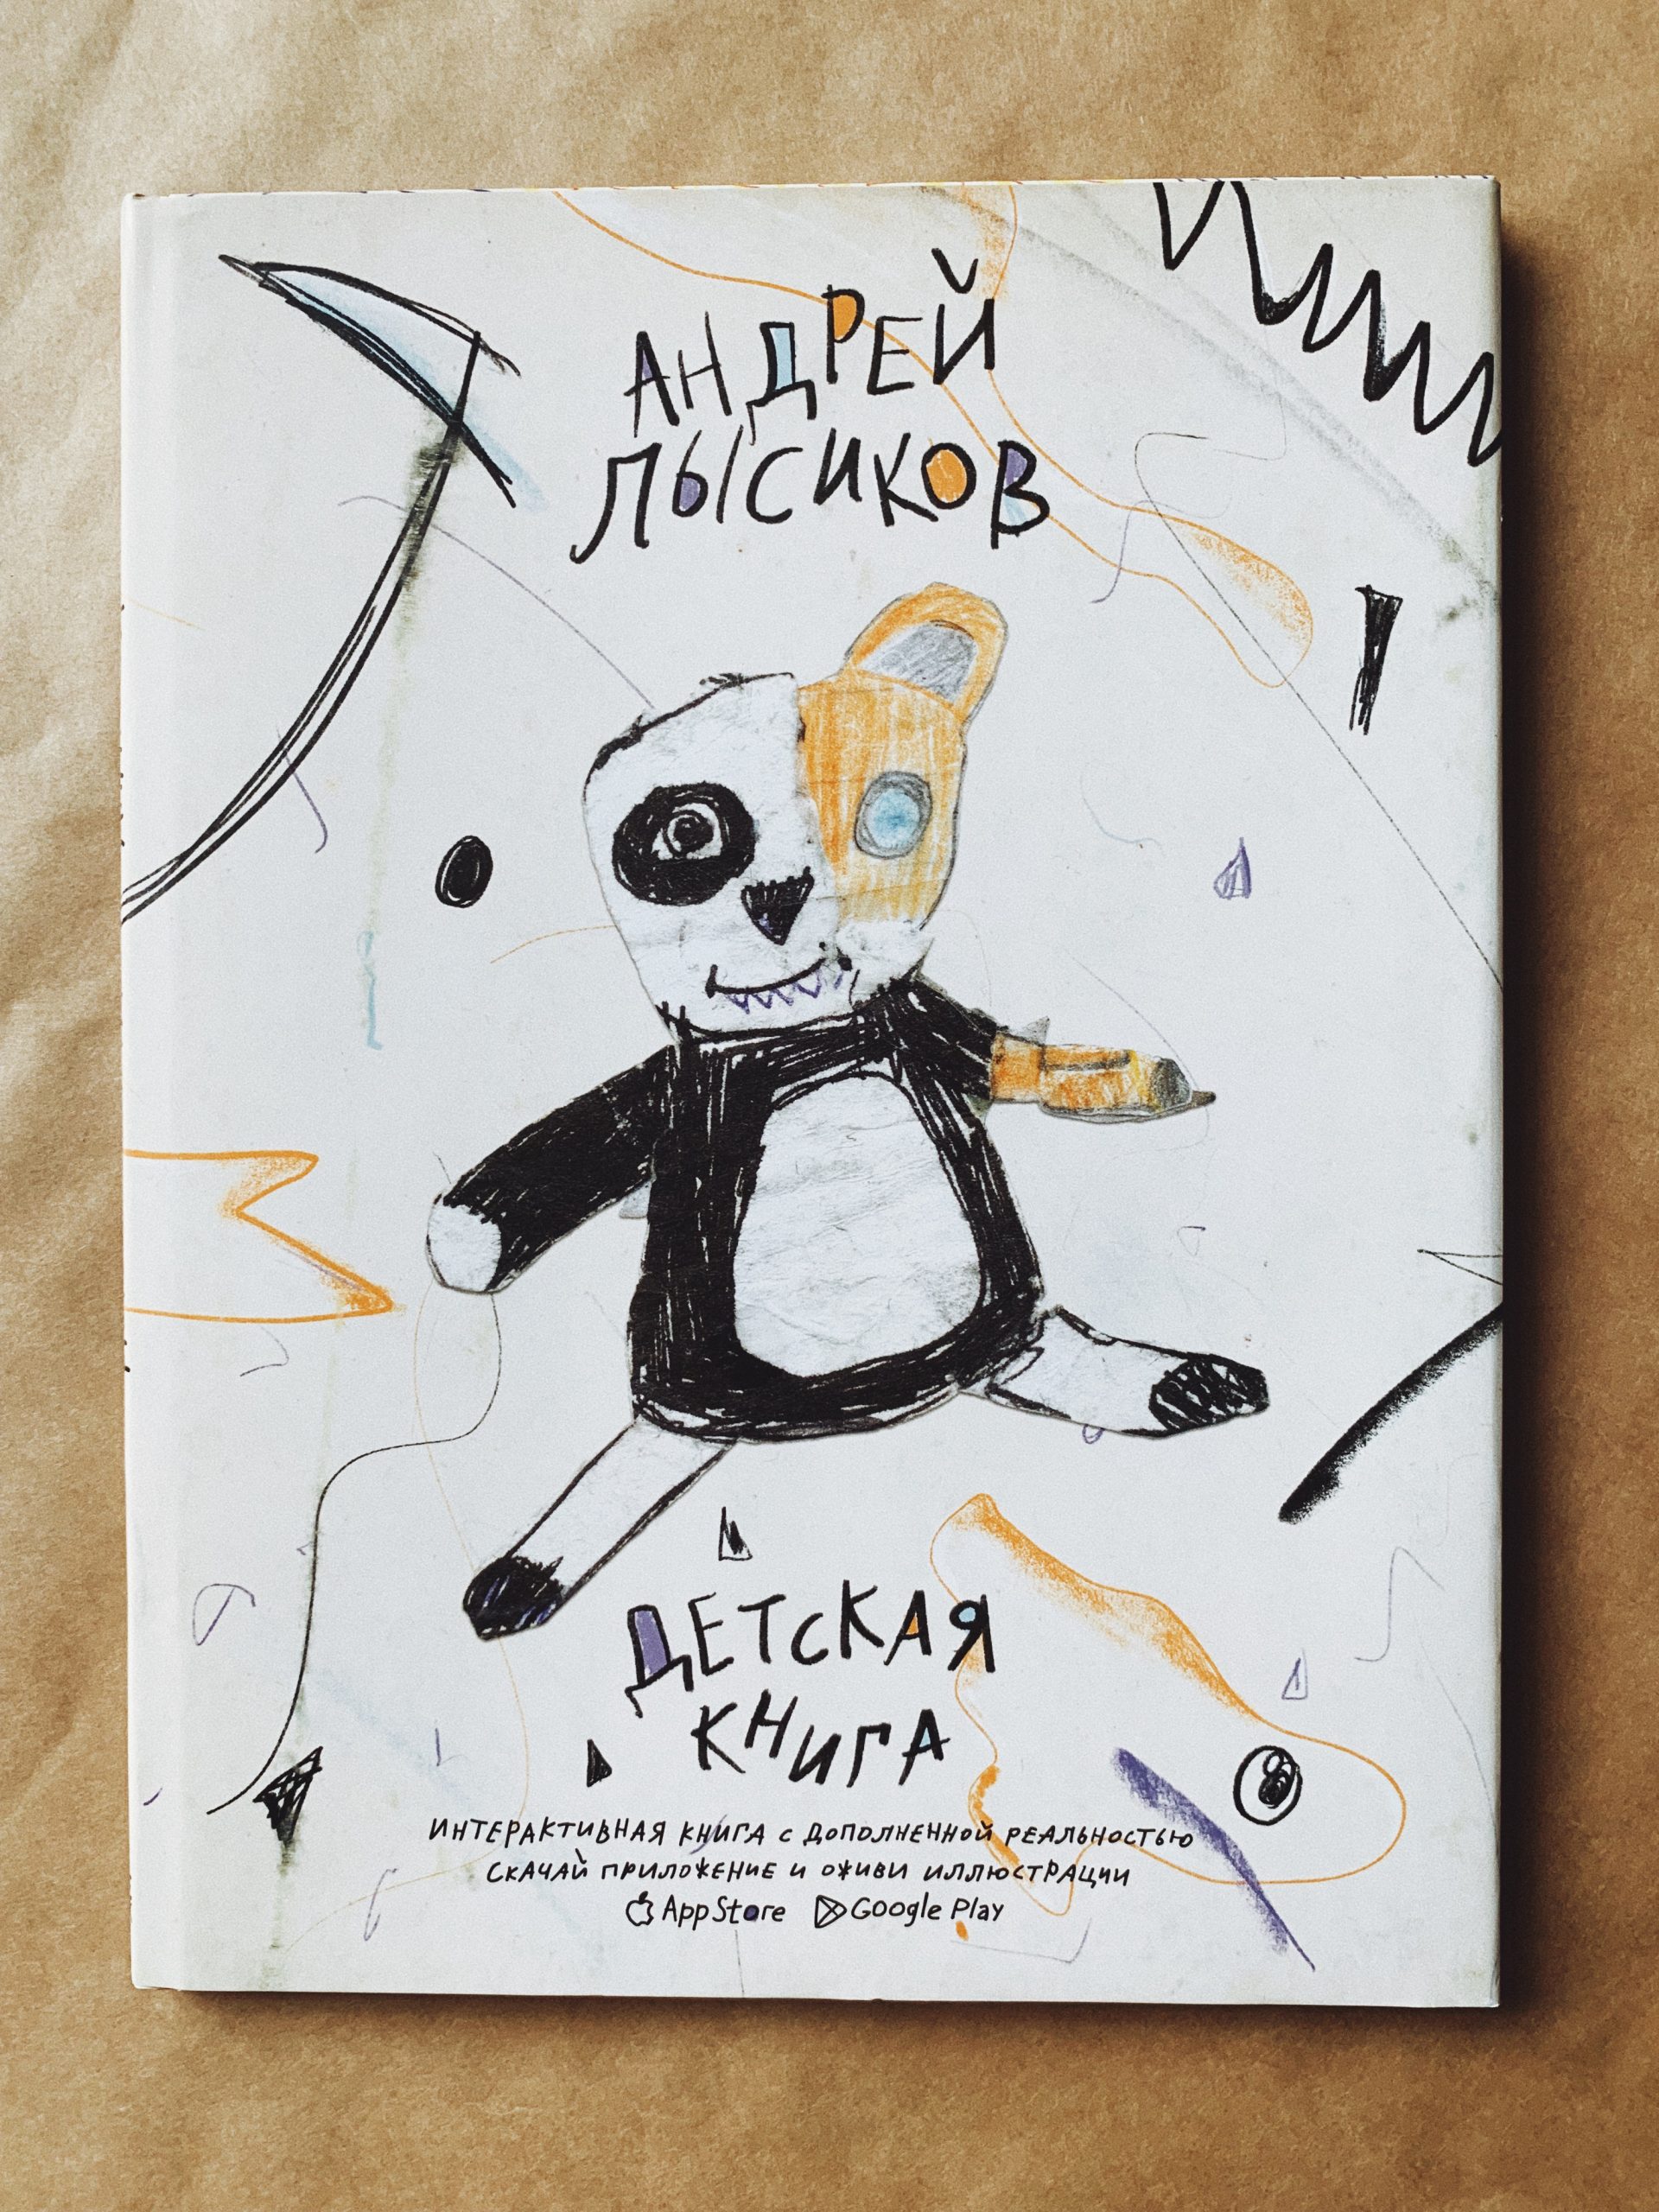 АНДРЕЙ
ЛЫСИКОВ
ДЕТСКАЯ
КНИГА
ИНТЕРАКТИВНАЯ КНИГА С ДОПОЛНЕННОЙ РЕАЛЬНОСТЬЮ
СКАЧАЙ ПРИЛОЖЕНИЕ И ОЖИВИ ИЛЛЮСТРАЦИИ
App Store Google Play